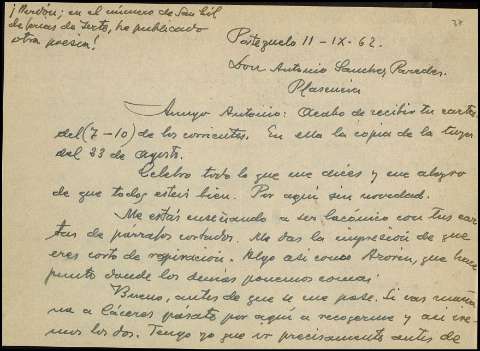 ¡Perdón; en el número de San Gil
de hojas de texto, he publicado
otra poesia!
28
Portezuelo 11-IX-62.
Don Antonio Sanchez Paredes.
Plasencia
Amigo Antonio: Acabo de recibir tu carta
del (7-10) de los corrientes. En ella la copia de la tuya
del 23 de agosto.
Celebro todo lo que me dices y me alegro
de que todos esteis bien. Por aquí sin novedad.
Me estás enseñando a ser lacónico con tus car-
tas de párrafos cortados. Me das la impresión de que
eres corto de respiración. Algo asi como Azorín, que hace
punto donde los demás ponemos coma.
Bueno, antes de que se me pase. Si vas maña-
na a Cáceres pásate por aquí a recogerme y asi ire-
mos los dos. Tengo yo que ir precisamente antes de